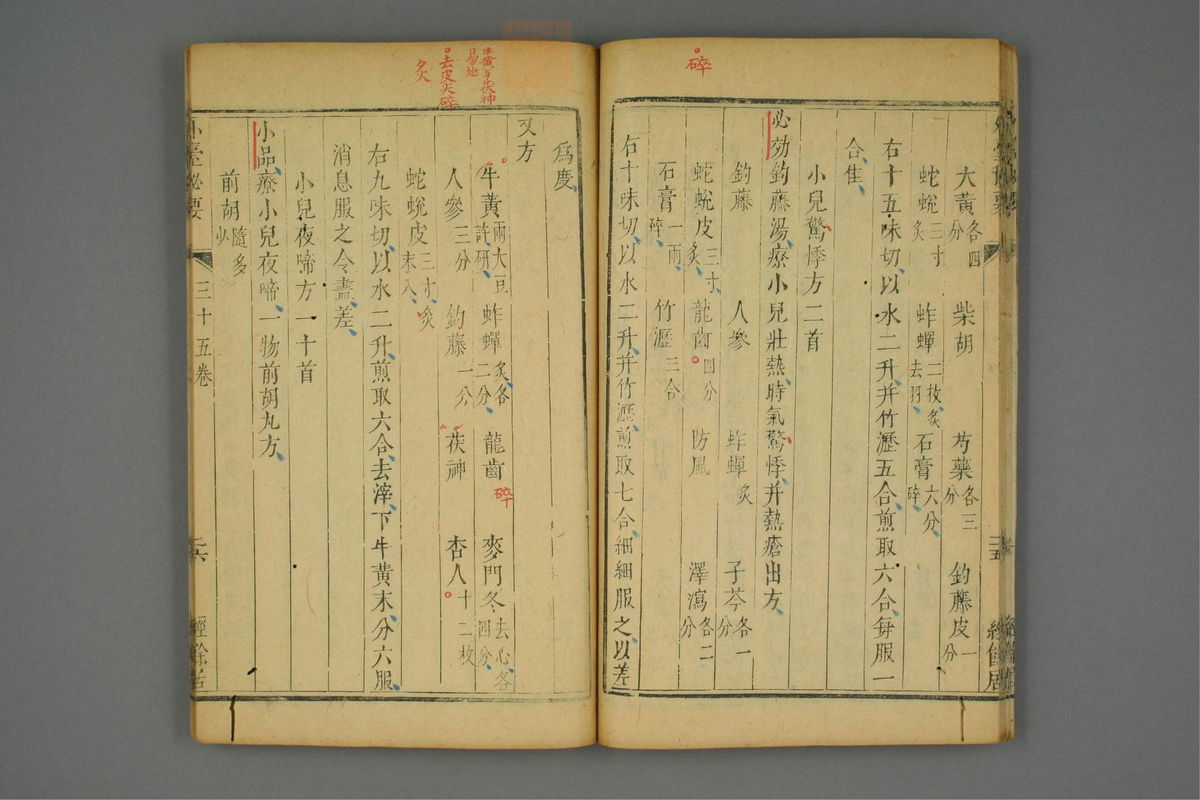 碎
大黃各四分 柴胡 芍藥各三分 釣藤皮一分
蛇蛻三寸炙 蚱蟬二枚炙去羽 石膏六分碎
右十五味切以水二升并竹瀝五合煎取六合每服一
合隹
小兒驚悸方二首
必効釣藤湯療小兒壯熱時氣驚悸并熱瘡出方
釣藤 人參 蚱蟬炙 子芩各一分
蛇蛻皮三寸炙 龍齒四分 防風 澤瀉各二分
石膏一兩碎 竹瀝三合
右十味切以水二升并竹瀝煎取七合細細服之以差
為度
又方
牛黃兩大豆許研 蚱蟬炙各二分 龍齒 碎 麥門冬去心各四分
人參三分 釣藤一分 茯神 杏人十二枚
蛇蛻皮三寸炙末入
右九味切以水二升煎取六合去滓下牛黃末分六服
消息服之令盡差
小兒夜啼方一十首
小品療小兒夜啼一物前胡丸方
前胡隨多少
牛黃與茯神
易地
去皮尖碎
炙
外臺祕要 三十五卷 二十六 經餘居